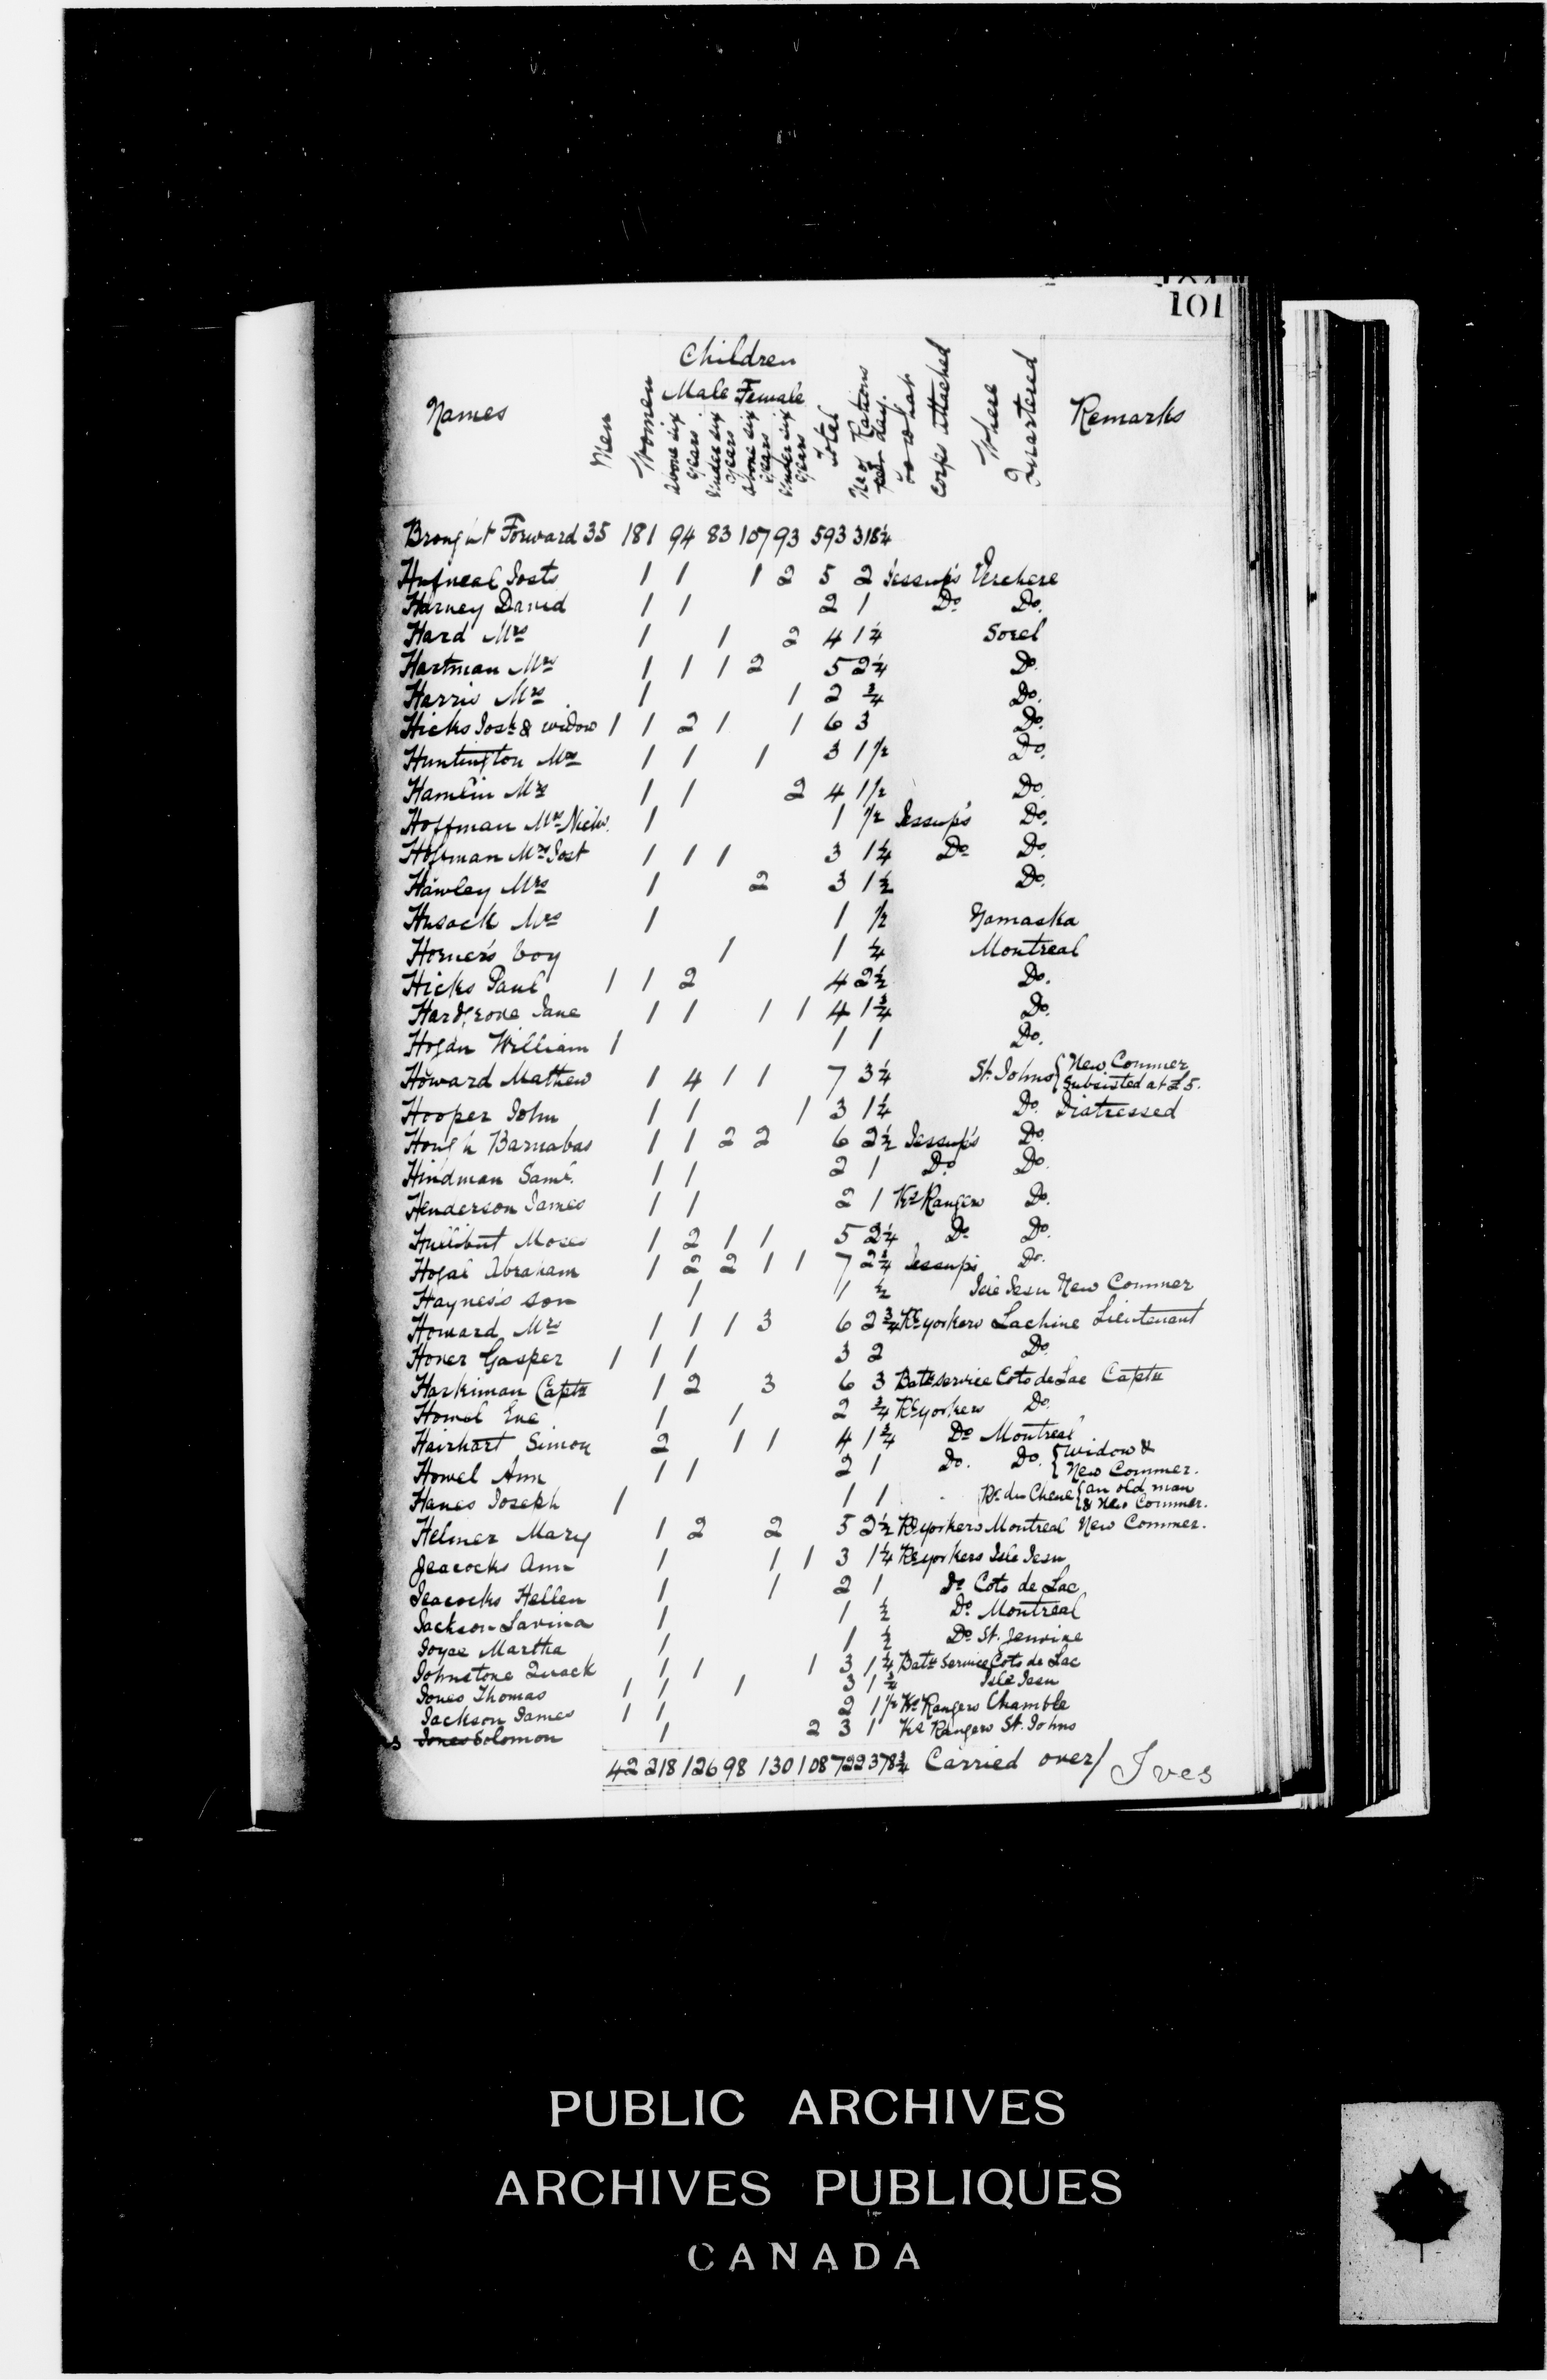 101
Children
Male Female
Names Men Women above six years under six years above six years under six years Total No of Rations per day. to what corps attached Where Quartered Remarks
Brought Forward 35 181 94 83 107 93 593 318¼
Hufneal Josts 1 1 1 2 5 2 Jessup's Verchere
Harney David 1 1 2 1 Do Do.
Hard Mrs 1 1 2 4 1¼ Sorel
Hartman Mrs 1 1 1 2 5 2¼ Do.
Harris Mrs 1 1 2 ¾ Do.
Hicks Josh & widow 1 1 2 1 1 6 3 Do.
Huntington Mrs 1 1 1 3 1½ Do.
Hamlin Mrs 1 1 2 4 1½ Do.
Hoffman Mrs Nichs. 1 1 ½ Jessup's Do.
Hoffman Mrs Jost 1 1 1 3 1¼ Do Do.
Hawley Mrs 1 2 3 1½ Do.
Husack Mrs 1 1 ½ Yamaska
Horner's boy 1 1 ¼ Montreal
Hicks Paul 1 1 2 4 2½ Do.
Hardgrove Jane 1 1 1 1 4 1¾ Do.
Hogan William 1 1 1 Do.
Howard Mathew 1 4 1 1 7 3¼ St. Johns { New Commer
Subsisted at £5.
Hooper John 1 1 1 3 1¼ Do. Distressed
Hough Barnabas 1 1 2 2 6 2½ Jessup's Do.
Hindman Saml. 1 1 2 1 Do. Do.
Henderson James 1 1 2 1 Ks Rangers Do.
Hullibut Moses 1 2 1 1 5 2¼ Do Do.
Hogal Abraham 1 2 2 1 1 7 2¾ Jessups Do.
Haynes's son 1 1 ½ Isle Jesu New Commer
Howard Mrs 1 1 1 3 6 2¾ Rl yorkers Lachine Lieutenant
Hover Gasper 1 1 1 3 2 Do.
Harkiman Captn 1 2 3 6 3 Batt service Coto de Lac Captn
Homel Eve 1 1 2 ¾ Rl yorkers Do.
Hairhart Simon 2 1 1 4 1¾ Do Montreal
Howel Ann 1 1 2 1 Do. Do. { widow &
New Commer.
Hanes Joseph 1 1 1 Rr. du Chene { an old man
& New Commer.
Helmer Mary 1 2 2 5 2½ Rl yorkers Montreal New Commer.
Jeacocks Ann 1 1 1 3 1¼ Rl yorkers Isle Jesu
Jeacocks Hellen 1 1 2 1 Do Coto de Lac
Jackson Lavina 1 1 ½ Do. Montreal
Joyce Martha 1 1 ½ Do St.
Johnstone Quack 1 1 1 3 1¼ Batt Service Coto de Lac
Jones Thomas 1 1 1 3 1¾ Isle Jesu
Jackson James 1 1 2 1½ Ks Rangers Chamble
Jones Solomon 1 2 3 1 Ks Rangers St. Johns
42 218 126 98 130 108 722 378¾ Carried over/ Ives
PUBLIC ARCHIVES
ARCHIVES PUBLIQUES
CANADA